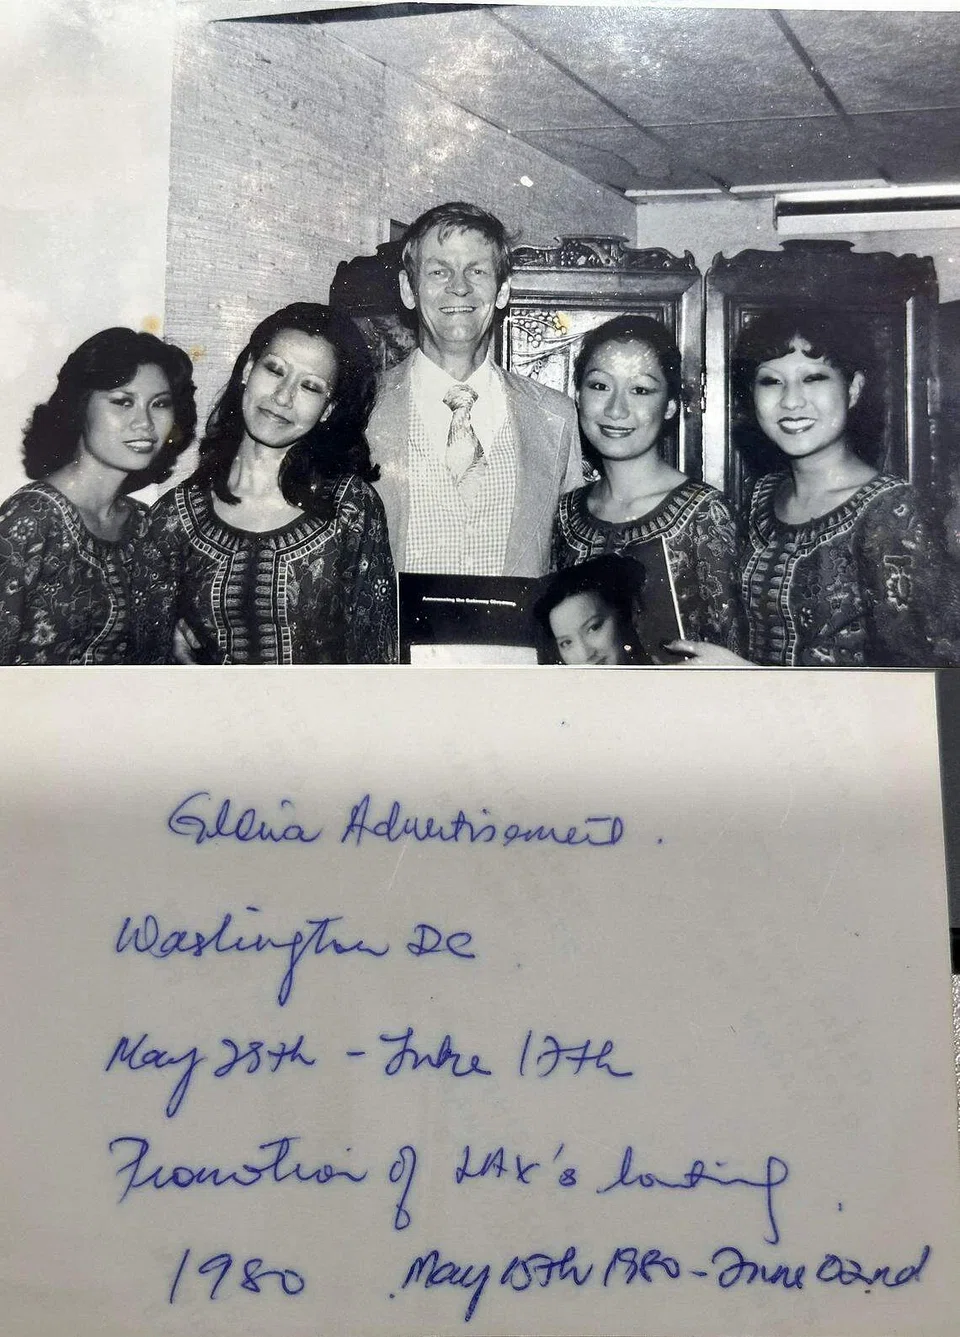 Announcing the Gateway Giveaway
Gloria Advertisement.
Washington DC
May 28th - June 17th
Promotion of LAX's landing.
1980 May 15th 1980 - June 02nd